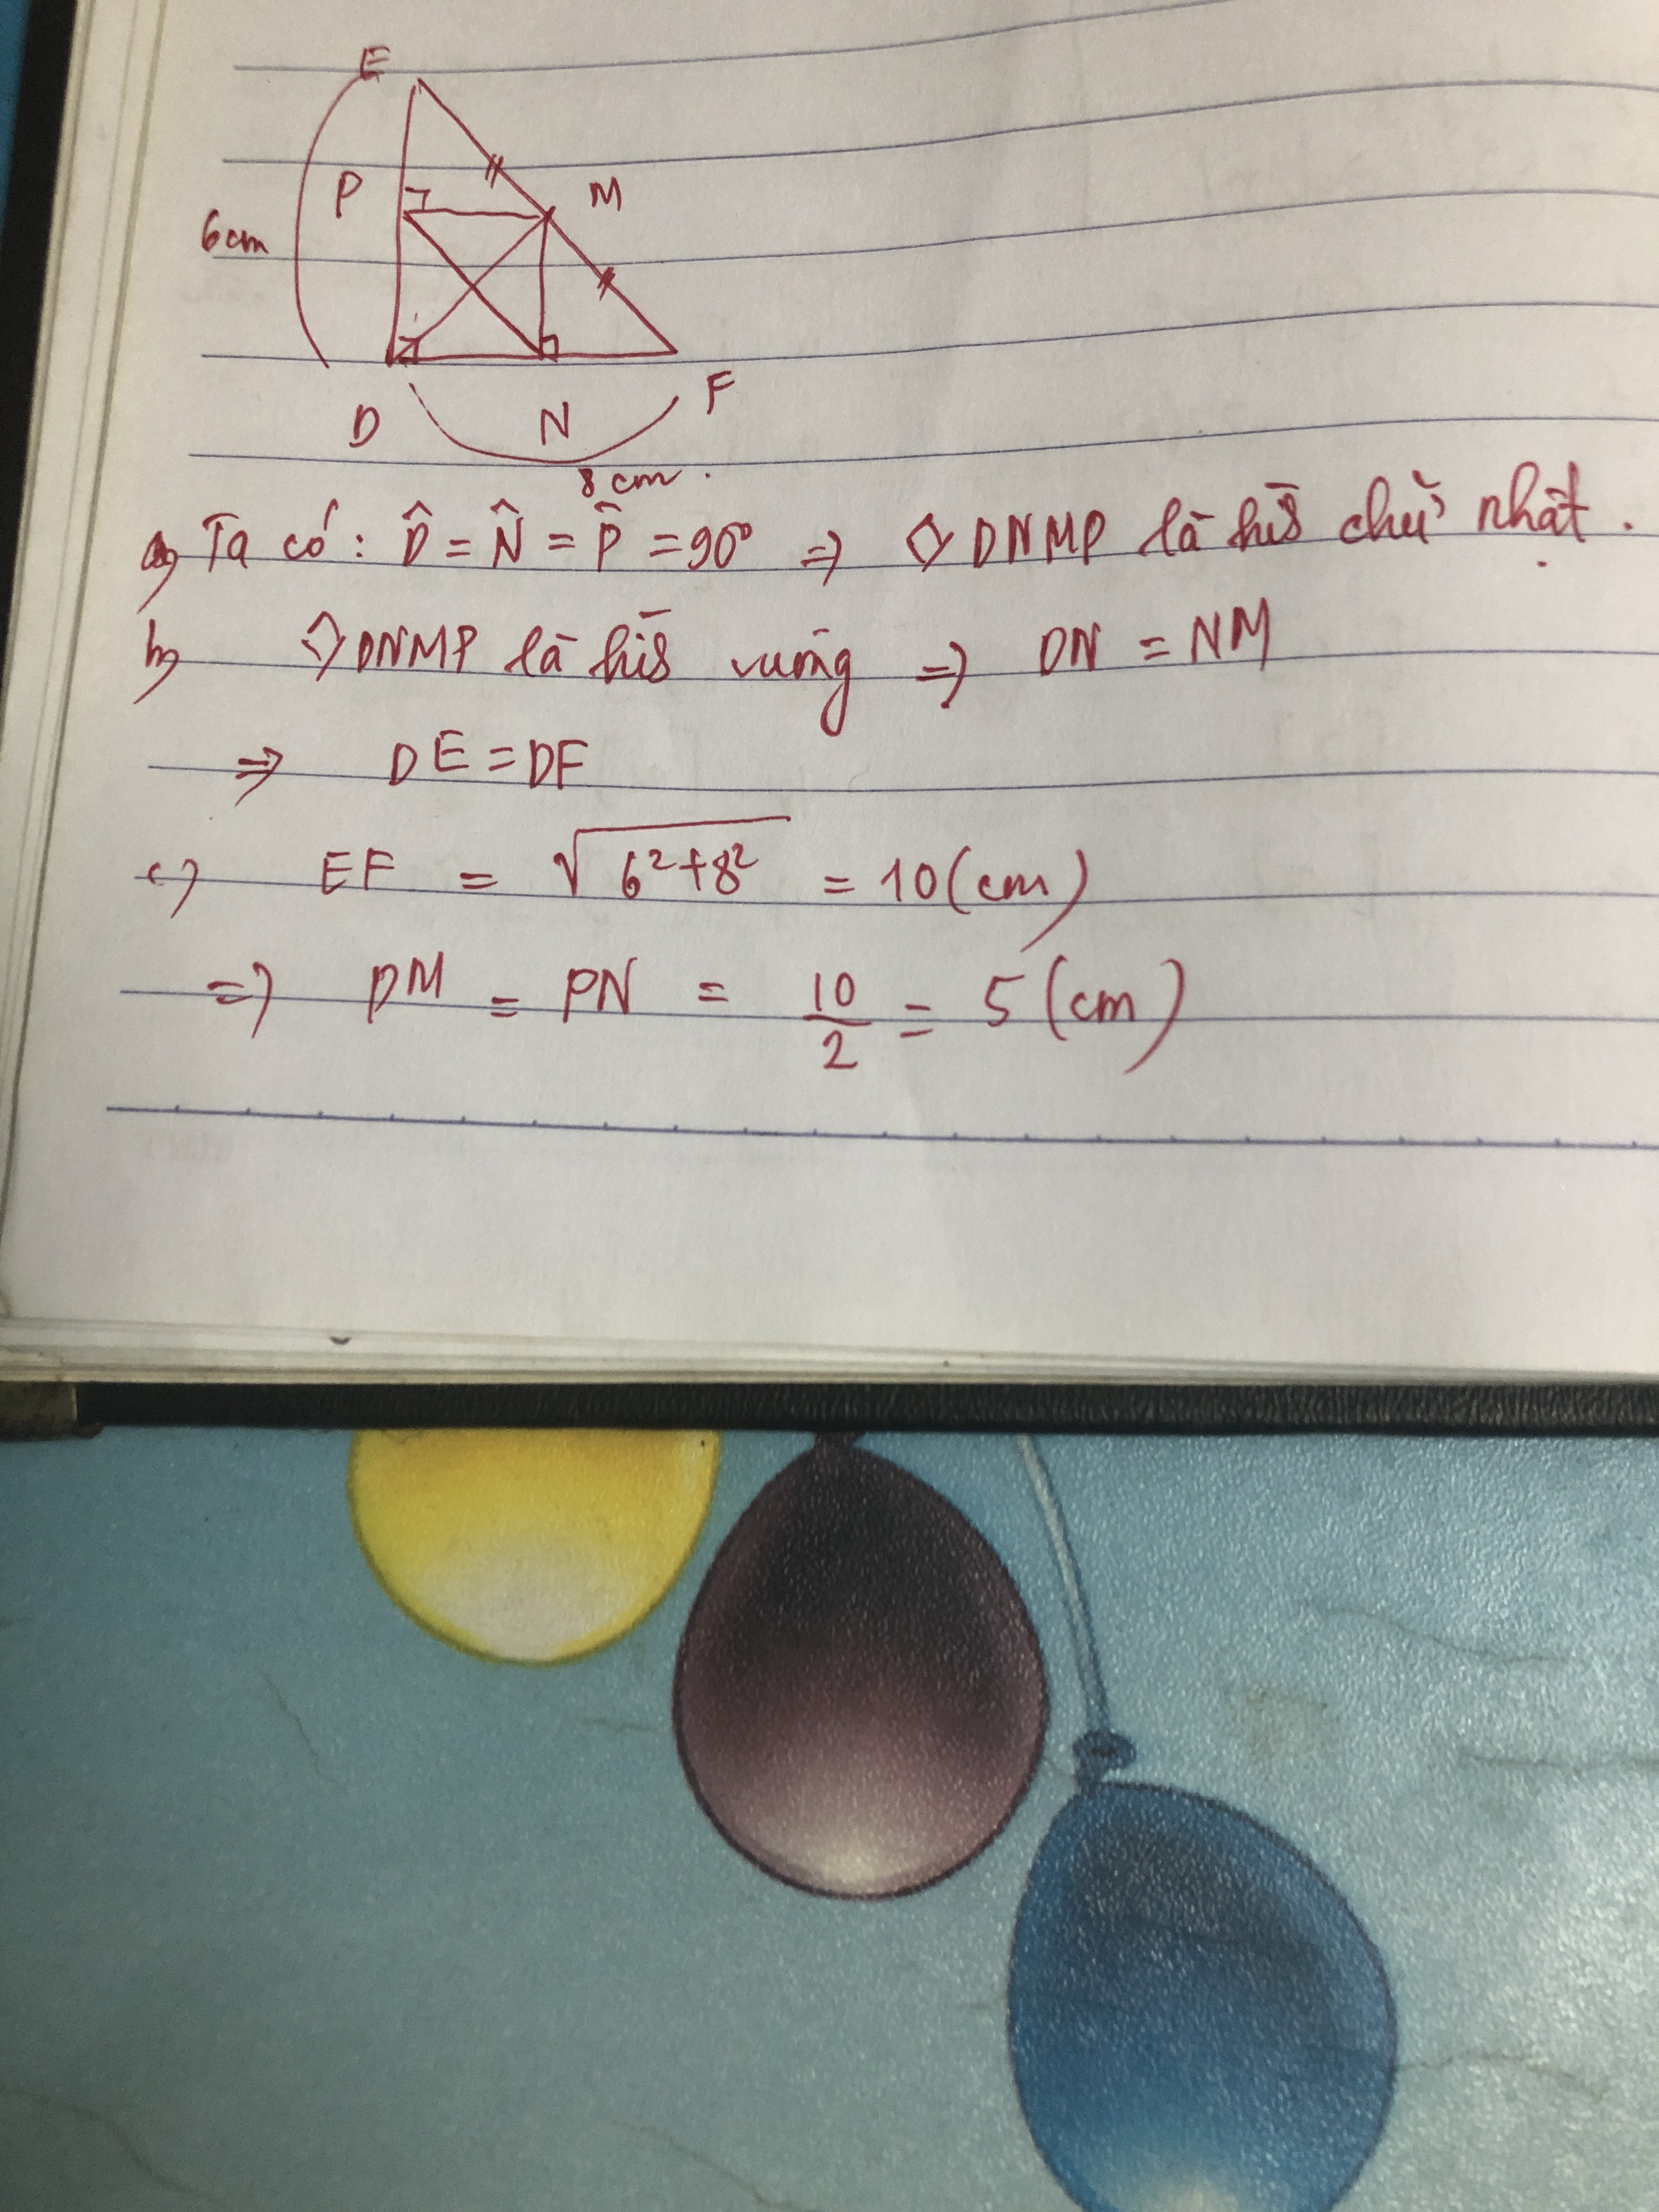 E
P M
6cm
D N F
8cm.
a) Ta có: D̂ = N̂ = P̂ = 90° => ◇ DNMP là hiS chữ nhật.
b) ◇ DNMP là hiS vuông => DN = NM
=> DE = DF
c) EF = √(6²+8²) = 10 (cm)
=> DM = PN = 10/2 = 5 (cm)